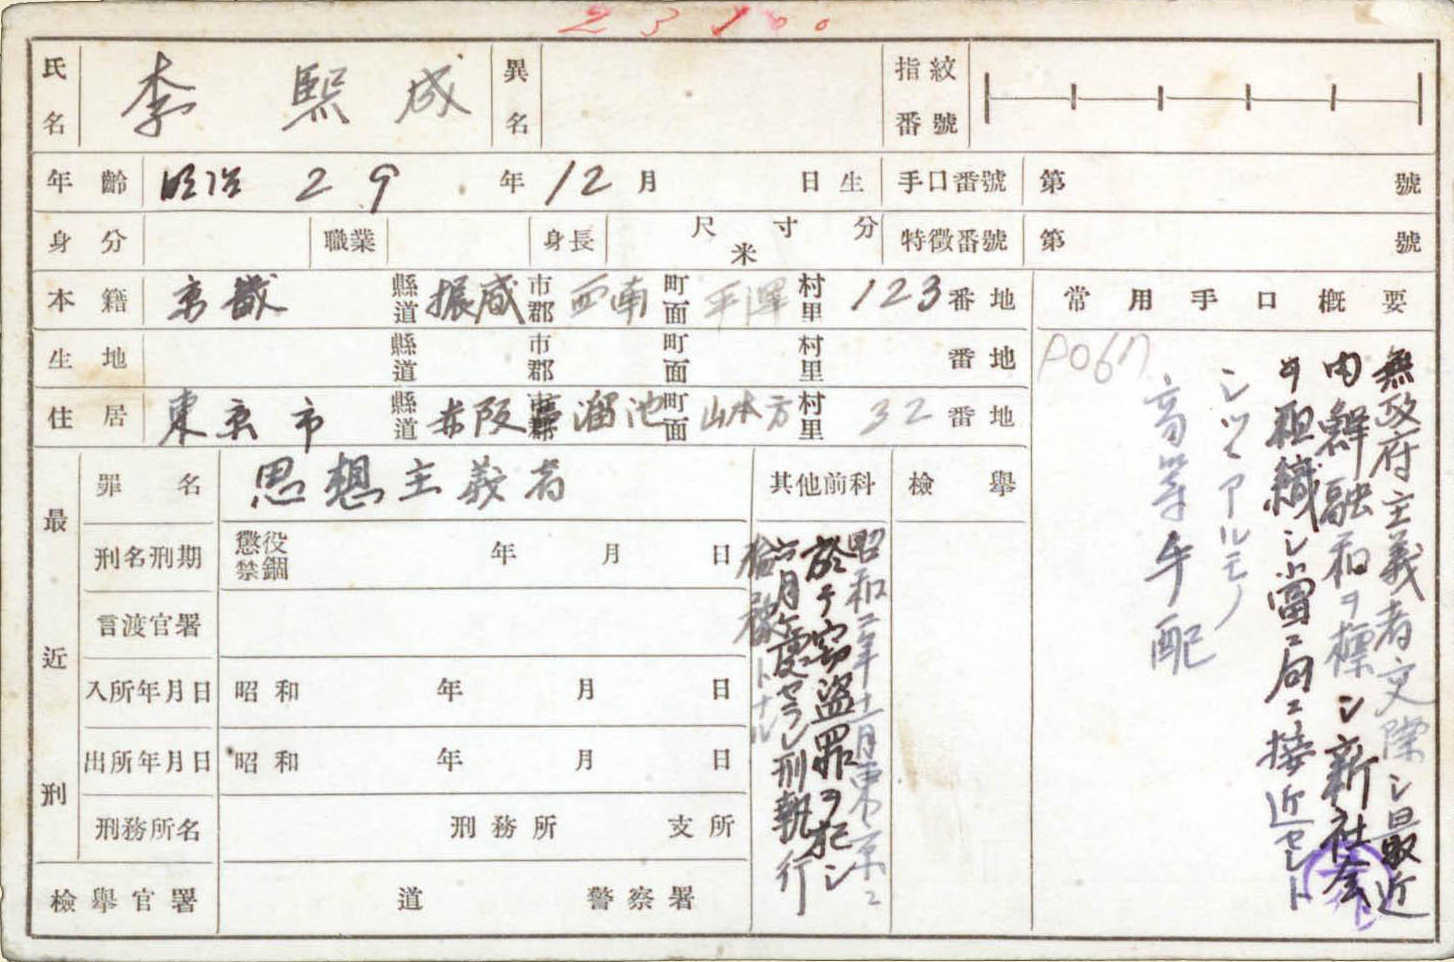 23100
氏名 李熙成 異名 指紋番號
年齡 明治29年12月 日生 手口番號 第 號
身分 職業 身長 尺寸分 米 特徵番號 第 號
本籍 京畿 縣道 振威 市郡 西南 町面 平澤 村里 123番地
生地 縣道 市郡 町面 村里 番地
住居 東京市 縣道 赤阪 市郡 溜池 町面 山本方 村里 32番地
常用手口槪要
P067
無政府主義者交際シ最近
內鮮融和ヲ標シ新社會
ヲ組織シ當ニ局ニ接近セント
シツツアルモノ
高等手配
最近刑
罪名 思想主義者
其他前科
檢擧
刑名刑期 懲役 禁錮 年 月 日
言渡官署
入所年月日 昭和 年 月 日
出所年月日 昭和 年 月 日
刑務所名 刑務所 支所
檢擧官署 道 警察署
昭和二年十一月東京ニ
於テ窃盜罪ヲ犯シ
六月ニ處セラレ刑執行
猶豫トナル